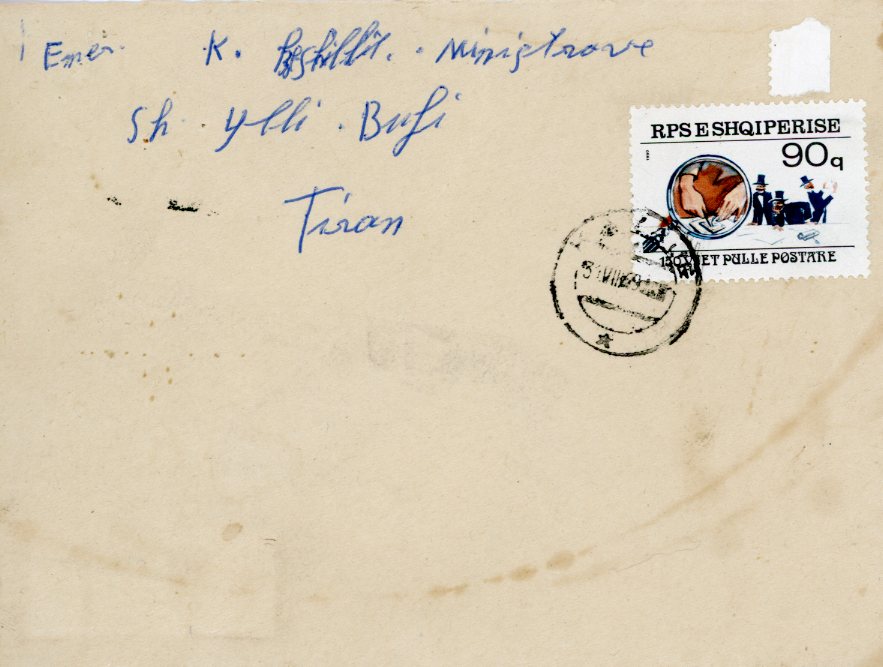 Emer. K. Këshillit. Ministrave
Sh. Ylli. Bufi
Tiran
RPS E SHQIPERISE
90q
150 VJET PULLE POSTARE